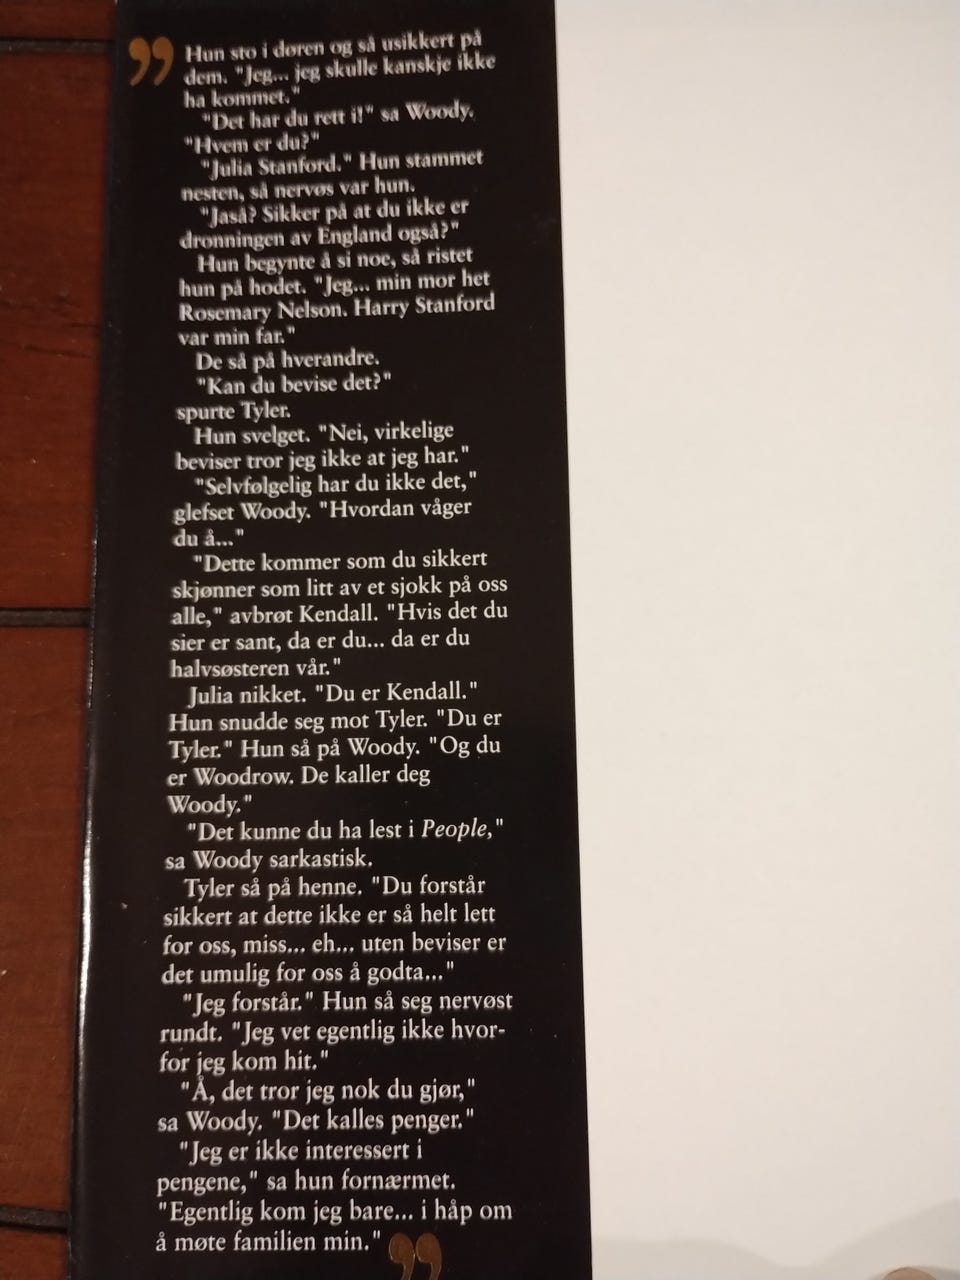 ” Hun sto i døren og så usikkert på
dem. "Jeg... jeg skulle kanskje ikke
ha kommet."
"Det har du rett i!" sa Woody.
"Hvem er du?"
"Julia Stanford." Hun stammet
nesten, så nervøs var hun.
"Jaså? Sikker på at du ikke er
dronningen av England også?"
Hun begynte å si noe, så ristet
hun på hodet. "Jeg... min mor het
Rosemary Nelson. Harry Stanford
var min far."
De så på hverandre.
"Kan du bevise det?"
spurte Tyler.
Hun svelget. "Nei, virkelige
beviser tror jeg ikke at jeg har."
"Selvfølgelig har du ikke det,"
glefset Woody. "Hvordan våger
du å..."
"Dette kommer som du sikkert
skjønner som litt av et sjokk på oss
alle," avbrøt Kendall. "Hvis det du
sier er sant, da er du... da er du
halvsøsteren vår."
Julia nikket. "Du er Kendall."
Hun snudde seg mot Tyler. "Du er
Tyler." Hun så på Woody. "Og du
er Woodrow. De kaller deg
Woody."
"Det kunne du ha lest i People,"
sa Woody sarkastisk.
Tyler så på henne. "Du forstår
sikkert at dette ikke er så helt lett
for oss, miss... eh... uten beviser er
det umulig for oss å godta..."
"Jeg forstår." Hun så seg nervøst
rundt. "Jeg vet egentlig ikke hvor-
for jeg kom hit."
"Å, det tror jeg nok du gjør,"
sa Woody. "Det kalles penger."
"Jeg er ikke interessert i
pengene," sa hun fornærmet.
"Egentlig kom jeg bare... i håp om
å møte familien min." ”